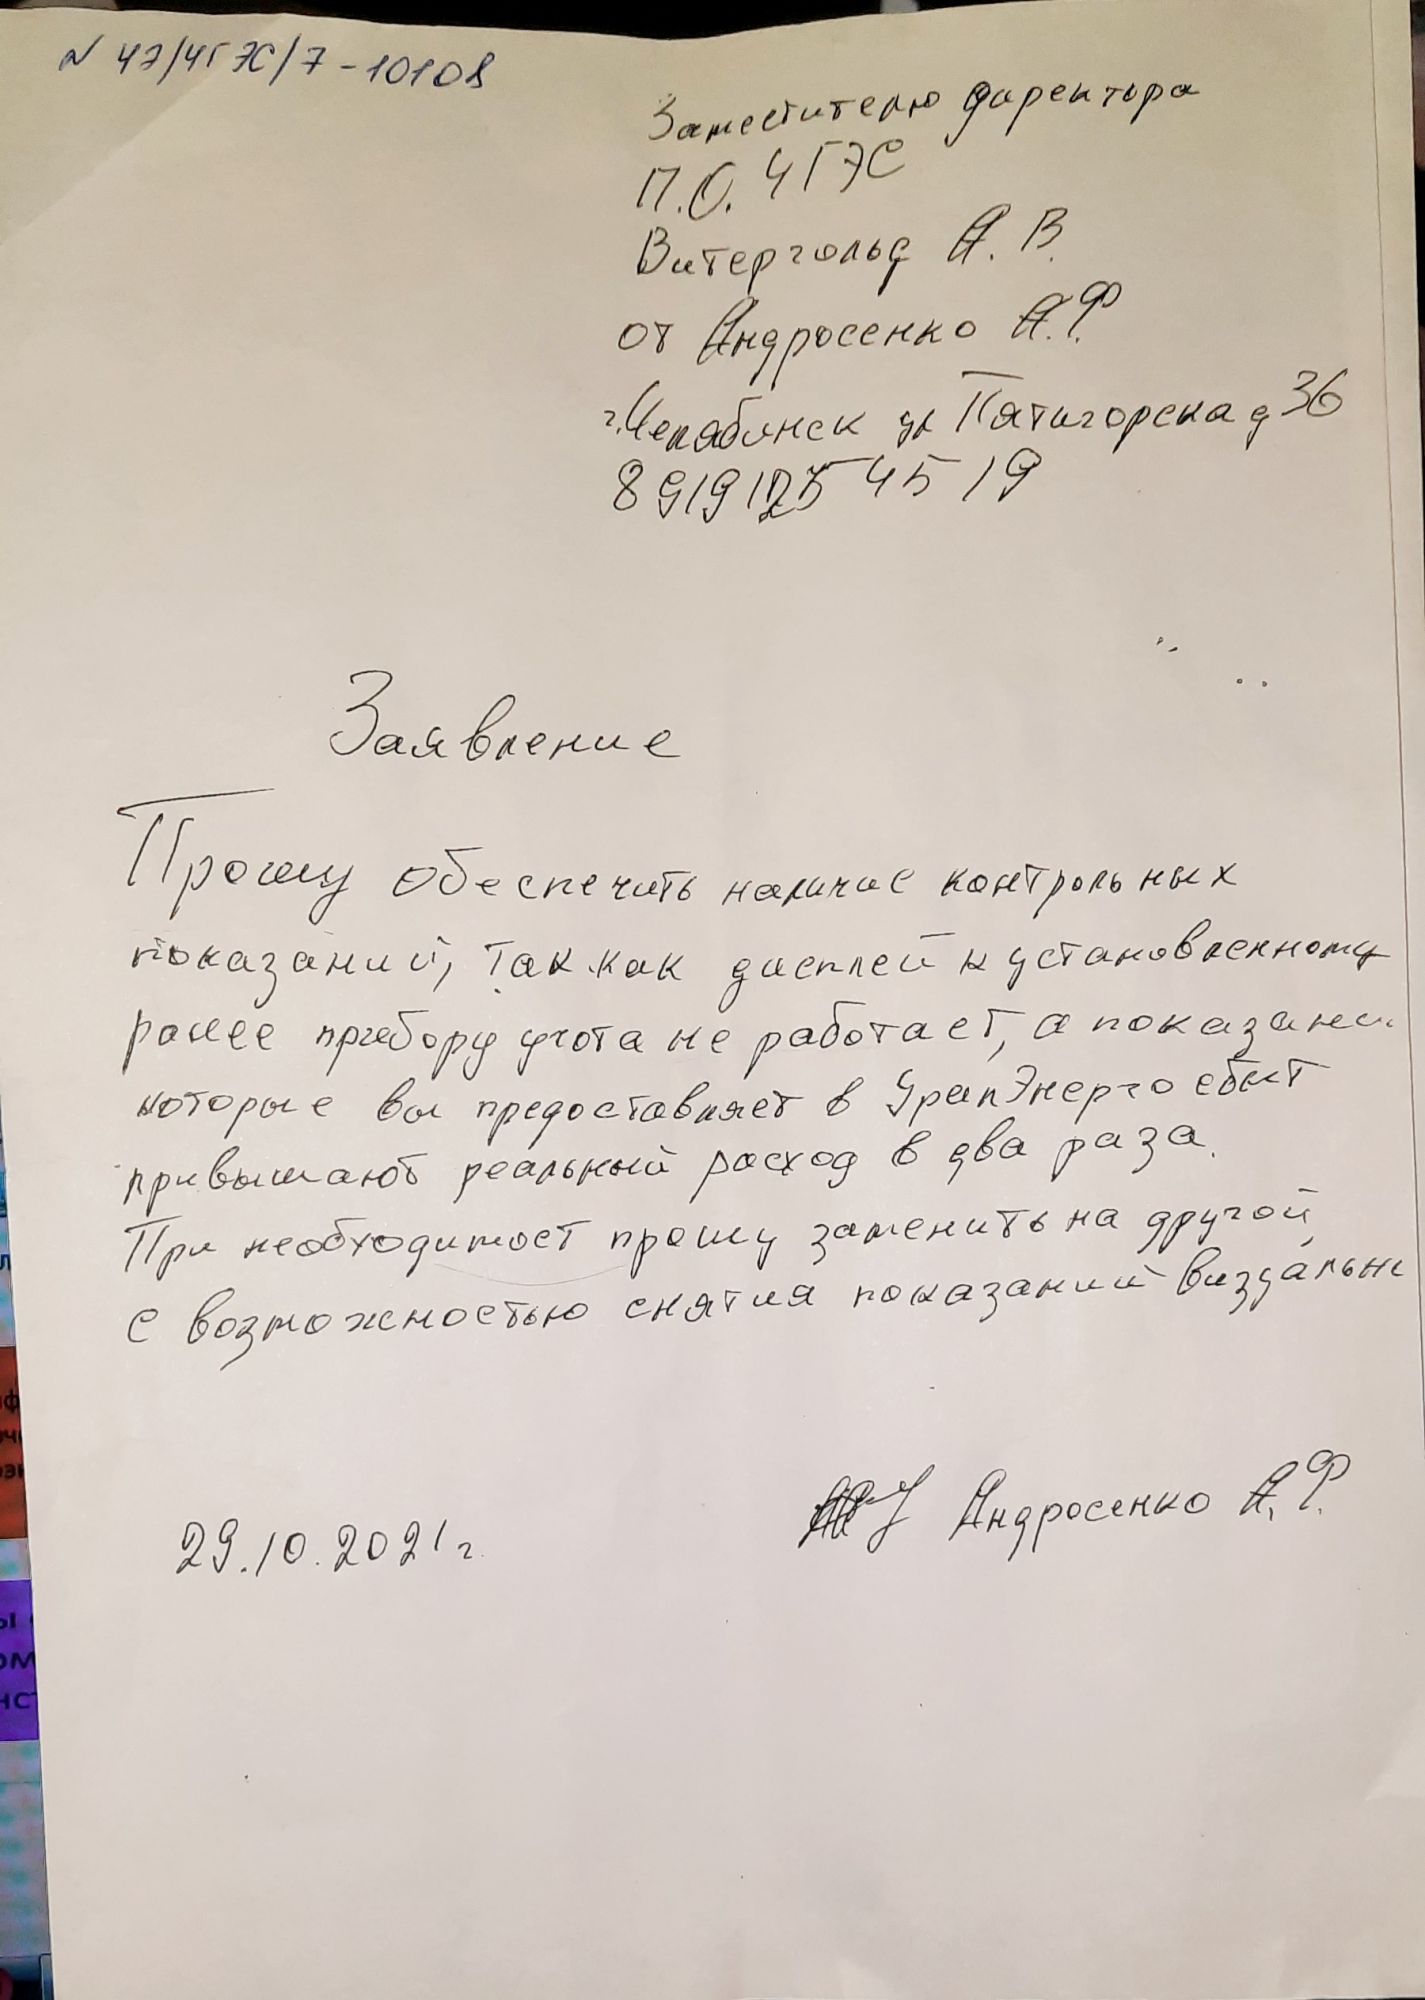 N ЧЭ/ЧГЭС/7-10108
Заместителю директора
П.О. ЧГЭС
Витергольд А. В.
от Андросенко А.Ф.
г. Челябинск ул Пятигорска д 36
Заявление
Прошу обеспечить наличие контрольных
показаний, так как дисплей к установленному
ранее прибору учота не работает, а показани
которые вы предоставляет в УралЭнерго сбыт
привышают реальный расход в два раза.
При необходимост прошу заменить на другой
с возможностью снятия показаний визуальн
Андросенко А.Ф.
29.10.2021г.